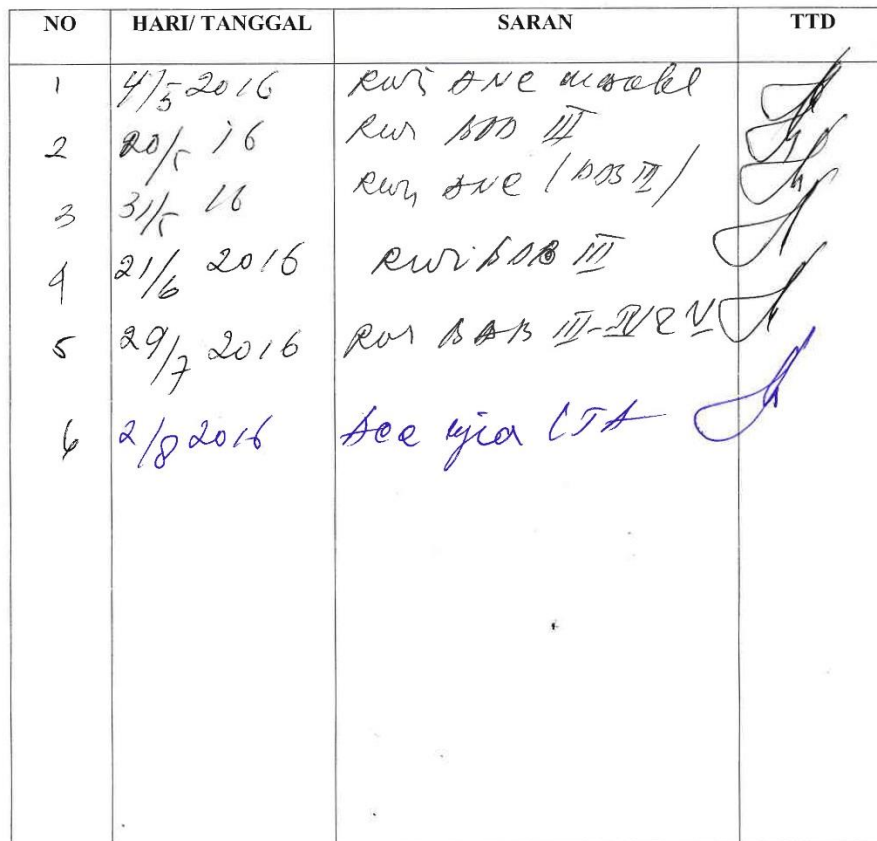 NO HARI/ TANGGAL SARAN TTD
1 4/5 2016 ANC
2 20/5 16 BAB III
3 31/5 16 ANC (BAB III)
4 21/6 2016 BAB III
5 29/7 2016 BAB III-IV & V
6 2/8 2016 Acc ujian LTA